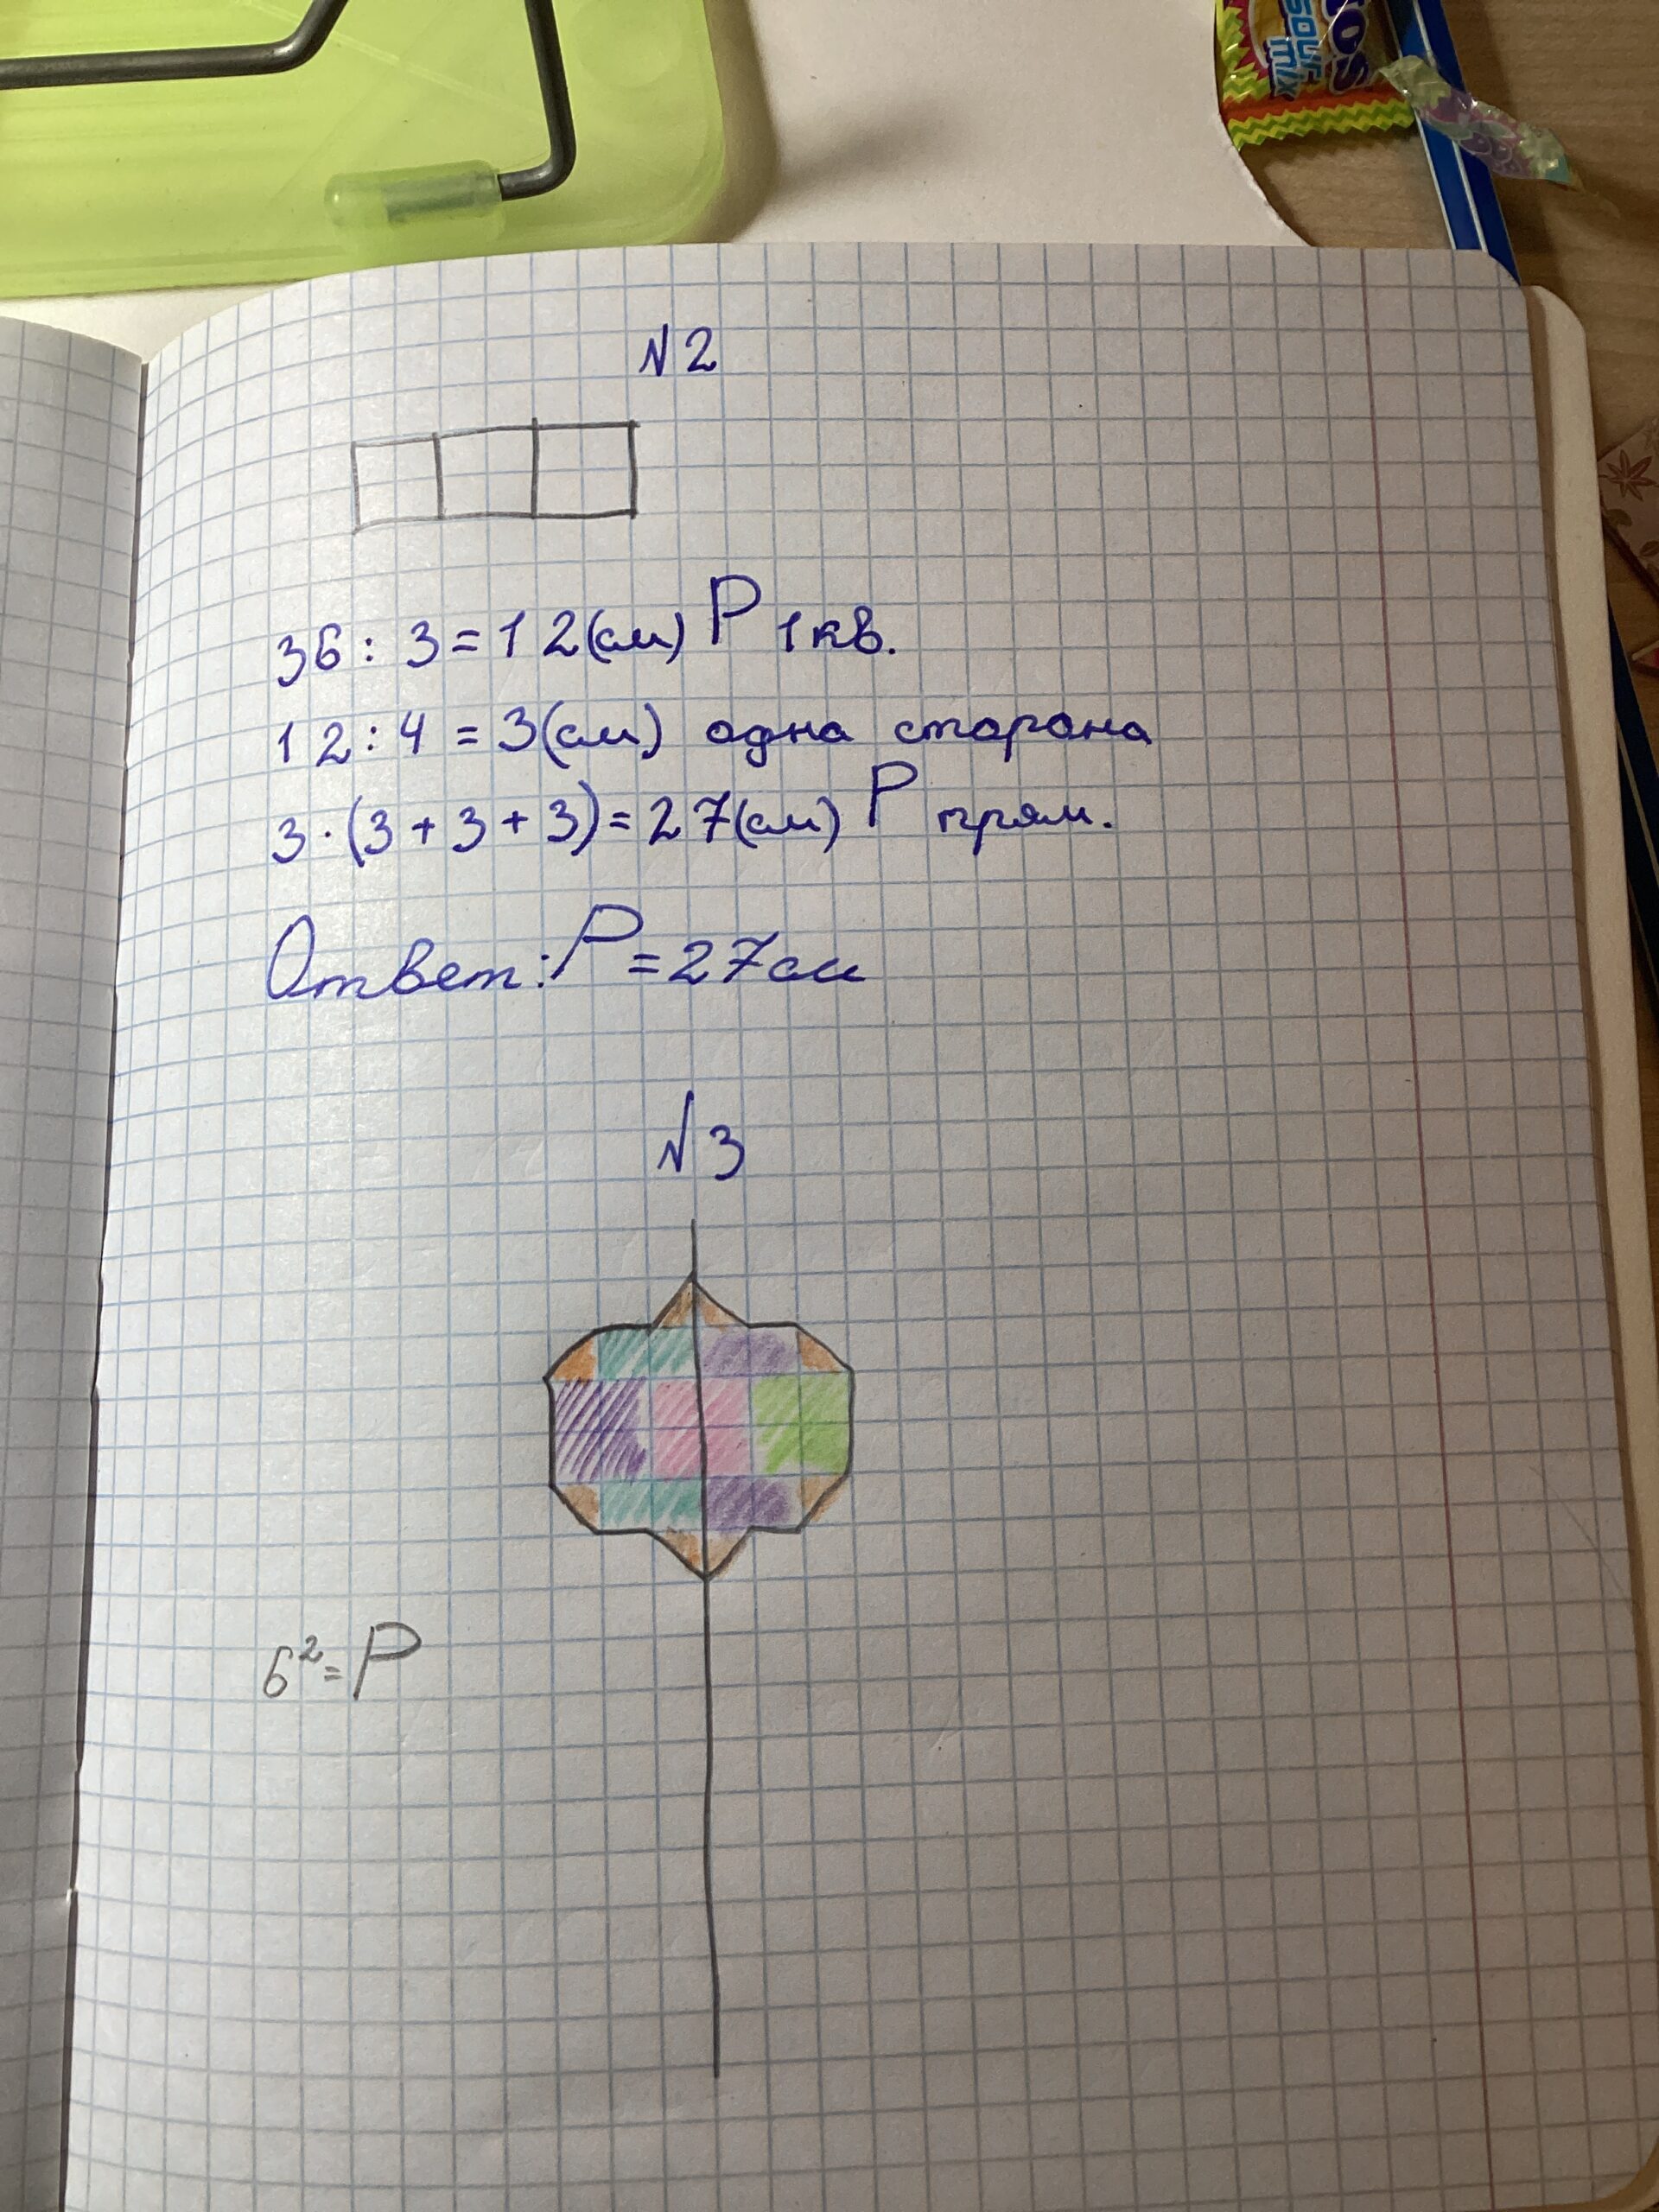 SOUR
MIX
№2
36 : 3 = 12(см) P 1 кв.
12 : 4 = 3(см) одна сторона
3 · (3 + 3 + 3) = 27(см) P прям.
Ответ: P = 27 см
№3
6² = P